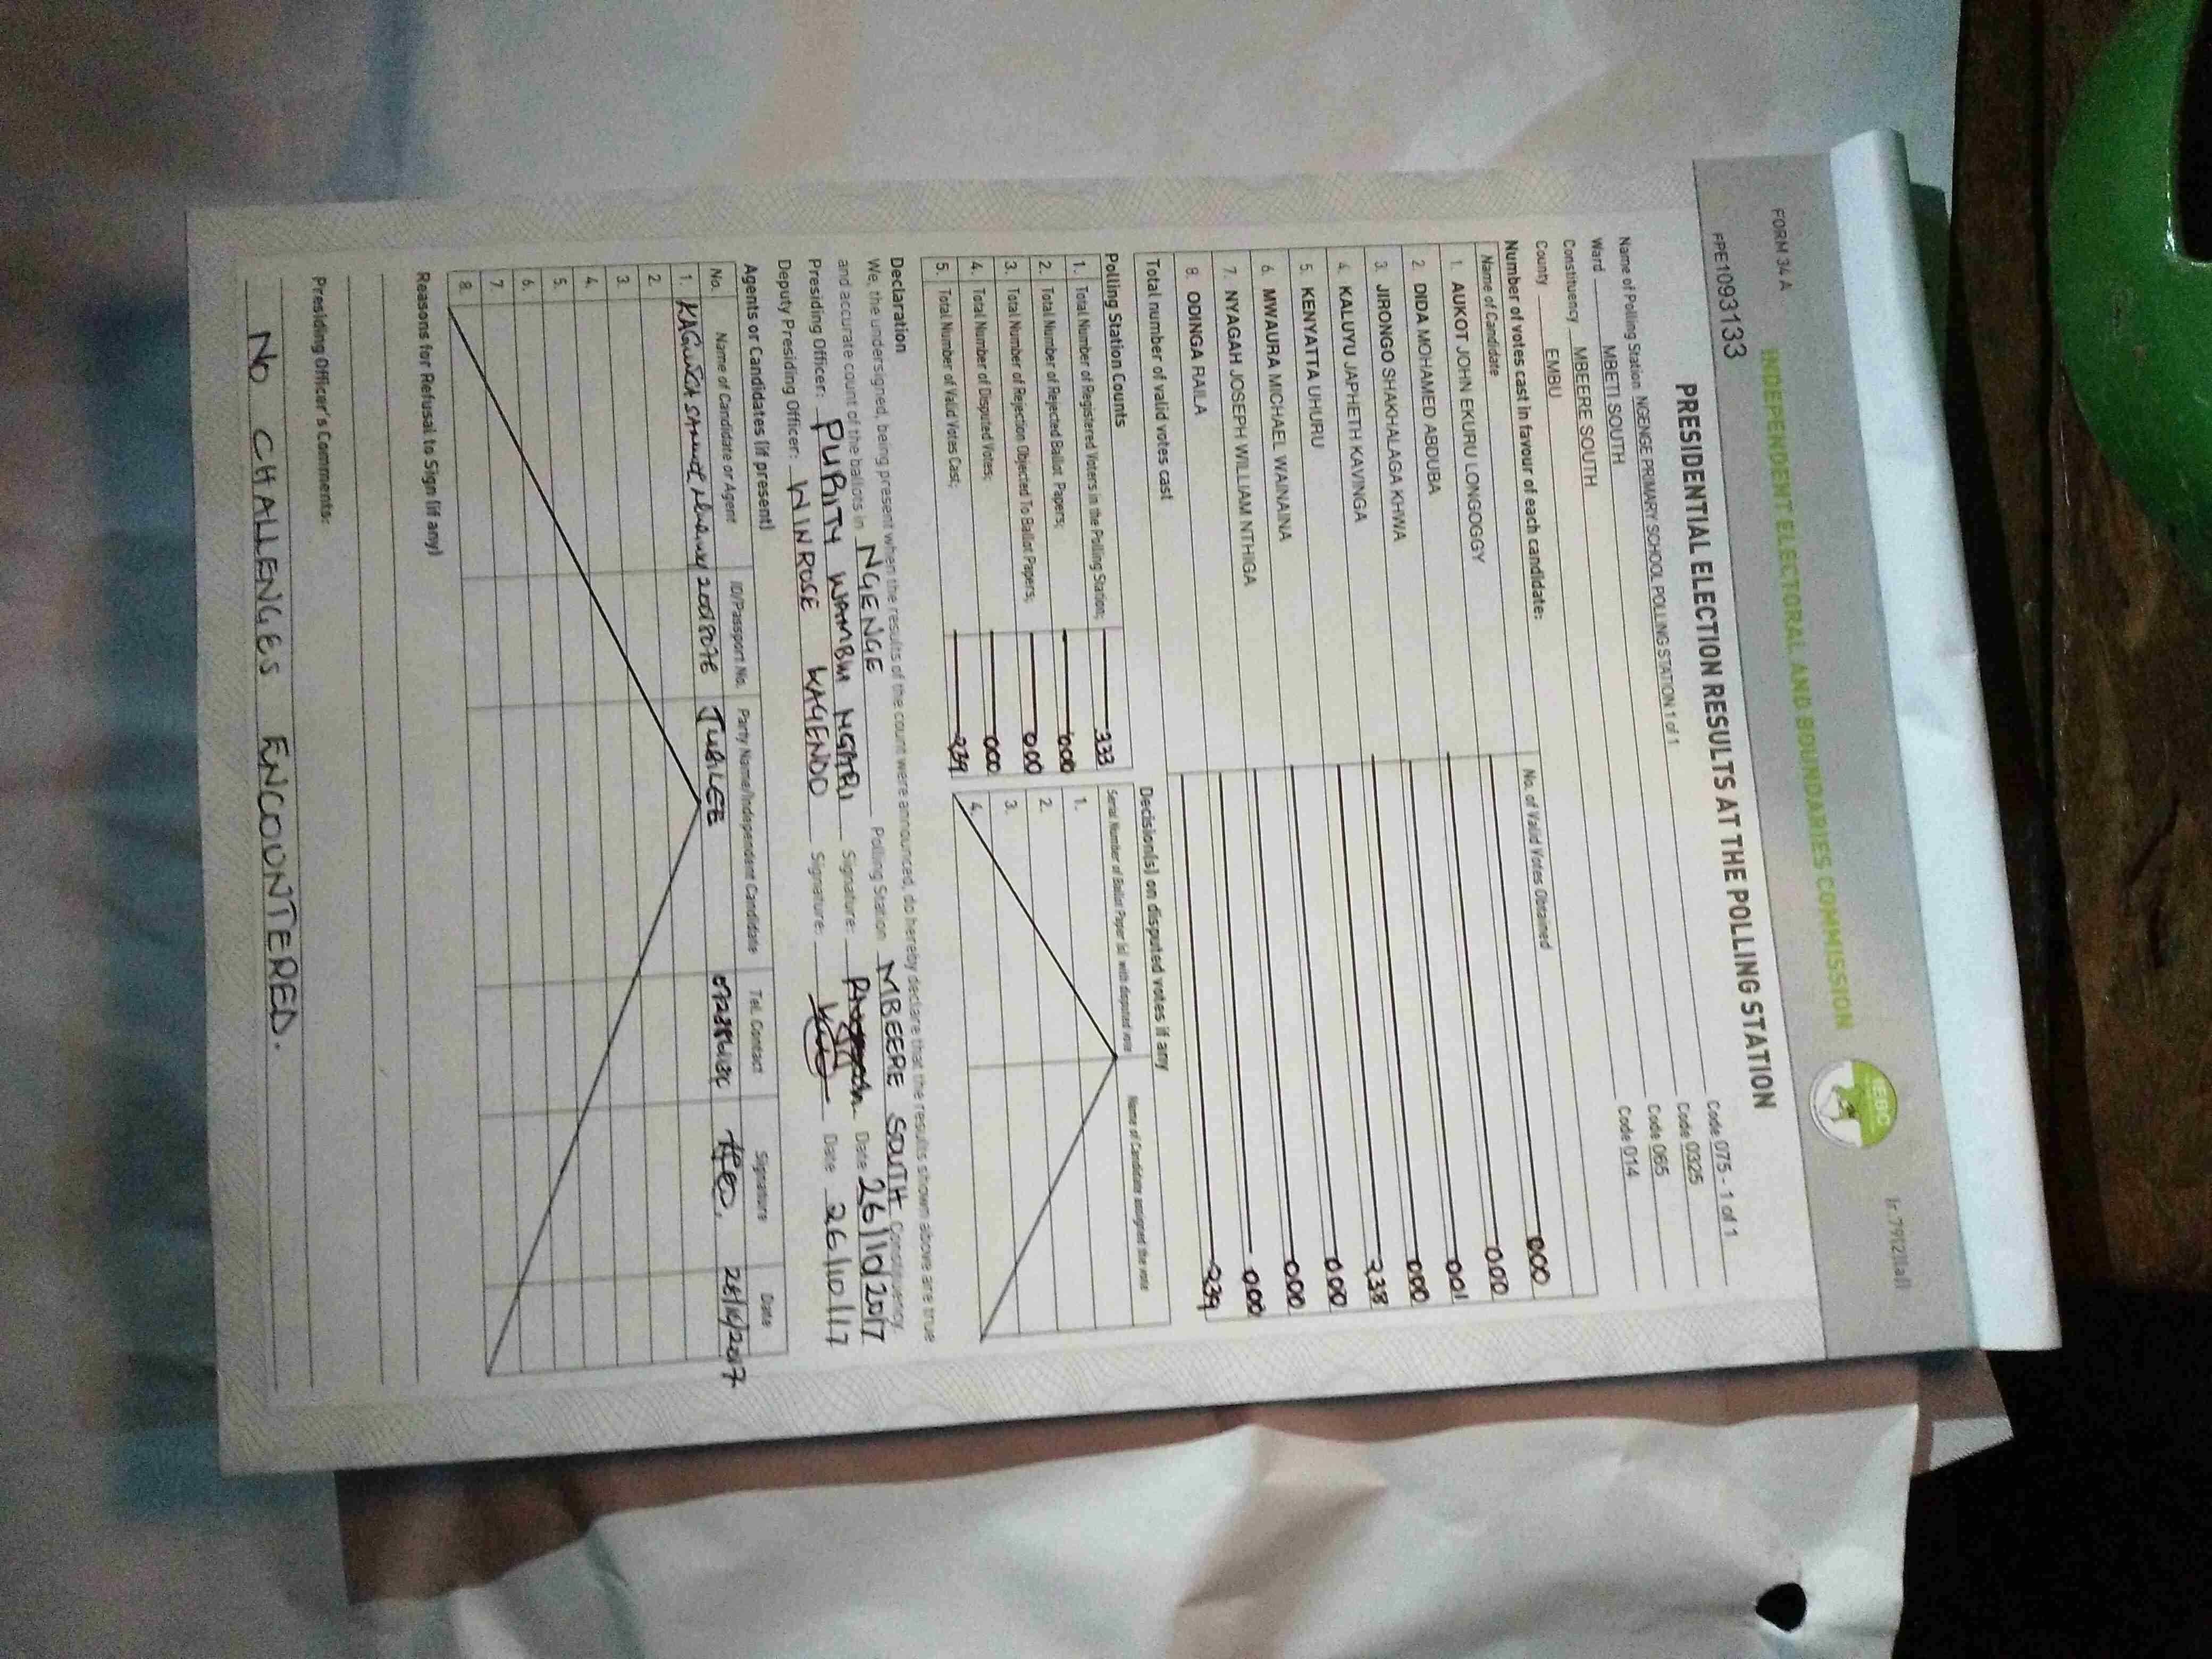 FORM 34 A
INDEPENDENT ELECTORAL AND BOUNDARIES COMMISSION
IEBC
FPE1093133
PRESIDENTIAL ELECTION RESULTS AT THE POLLING STATION
Name of Polling Station NGENGE PRIMARY SCHOOL POLLING STATION 1 of 1 Code 075 - 1 of 1
Ward MBETI SOUTH Code 0325
Constituency MBEERE SOUTH Code 065
County EMBU Code 014
Number of votes cast in favour of each candidate:
Name of Candidate No. of Valid Votes Obtained
1. AUKOT JOHN EKURU LONGOGGY 000
2. DIDA MOHAMED ABDUBA 000
3. JIRONGO SHAKHALAGA KHWA 001
4. KALUYU JAPHETH KAVINGA 000
5. KENYATTA UHURU 238
6. MWAURA MICHAEL WAINAINA 000
7. NYAGAH JOSEPH WILLIAM NTHIGA 000
8. ODINGA RAILA 000
Total number of valid votes cast 239
Polling Station Counts
1. Total Number of Registered Voters in the Polling Station; 333
2. Total Number of Rejected Ballot Papers; 000
3. Total Number of Rejection Objected To Ballot Papers; 000
4. Total Number of Disputed Votes; 000
5. Total Number of Valid Votes Cast; 239
Decision(s) on disputed votes if any
Serial Number of Ballot Paper (s) with disputed vote Name of Candidate assigned the vote
1.
2.
3.
4.
Declaration
We, the undersigned, being present when the results of the count were announced, do hereby declare that the results shown above are true
and accurate count of the ballots in NGENGE Polling Station MBEERE SOUTH Constituency
Presiding Officer: PURITY WAMBUI NGARI Signature: Date 26/10/2017
Deputy Presiding Officer: WINROSE KAGENDO Signature: Date 26/10/17
Agents or Candidates (if present)
No. Name of Candidate or Agent ID/Passport No. Party Name/Independent Candidate Tel. Contact Signature Date
1. SAMUEL 20018078 JUBILEE 26/10/2017
2.
3.
4.
5.
6.
7.
8.
Reasons for Refusal to Sign (if any)
Presiding Officer's Comments:
NO CHALLENGES ENCOUNTERED.